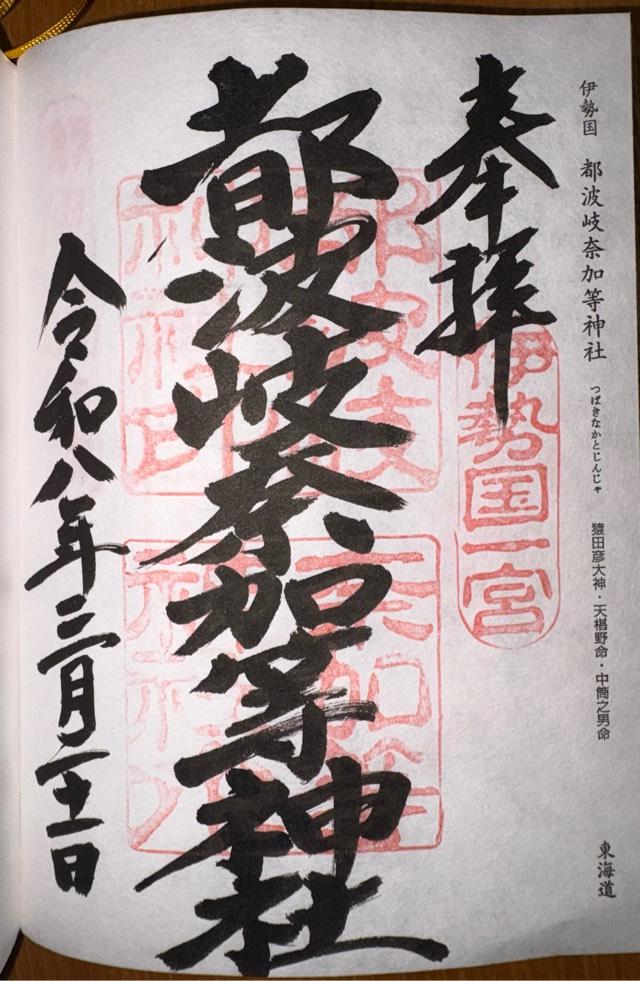 伊勢国 都波岐奈加等神社 つばきなかとじんじゃ 猿田彦大神・天椹野命・中筒之男命 東海道
奉拝
伊勢国一宮
都波岐奈加等神社
令和八年三月二十二日